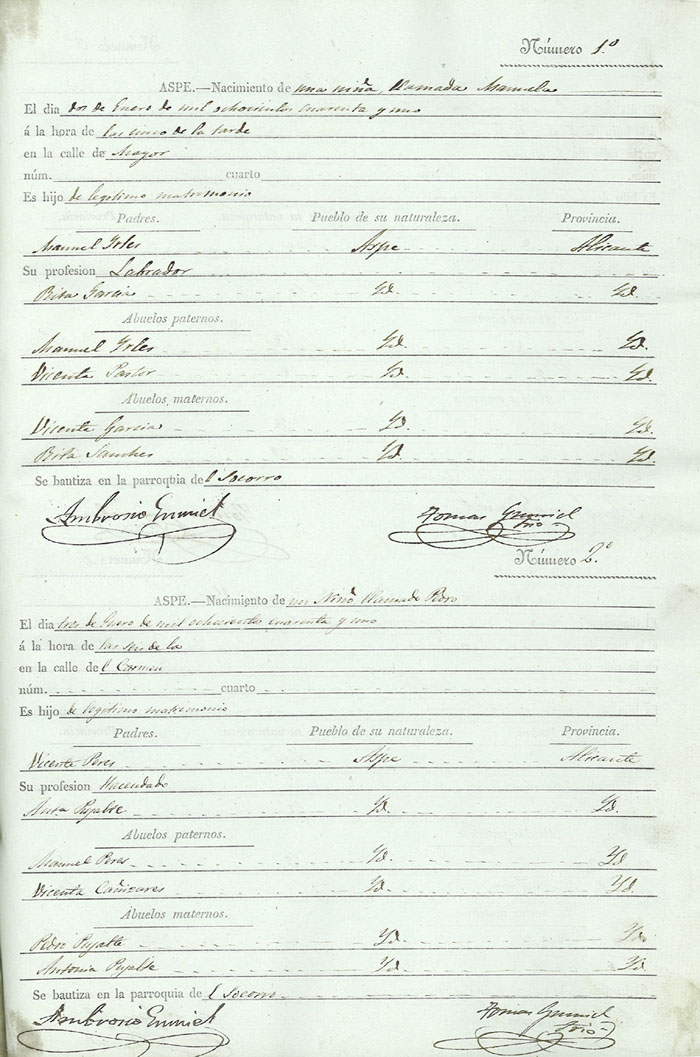 Número 1.º
ASPE.—Nacimiento de una niña, llamada Manuela
El dia dos de Enero de mil ochocientos cuarenta y uno
á la hora de las cinco de la tarde
en la calle de Mayor
núm. cuarto
Es hijo de legitimo matrimonio
Padres. Pueblo de su naturaleza. Provincia.
Manuel Yrles Aspe Alicante
Su profesion Labrador
Rita Garcia Yd. Yd.
Abuelos paternos.
Manuel Yrles Yd. Yd.
Vicenta Pastor Yd. Yd.
Abuelos maternos.
Vicente Garcia Yd. Yd.
Rita Sanches Yd. Yd.
Se bautiza en la parroquia del Socorro
Ambrosio Tomas
Número 2.º
ASPE.—Nacimiento de un Niño llamado Pedro
El dia tres de Enero de mil ochocientos cuarenta y uno
á la hora de las seis de la
en la calle del Carmen
núm. cuarto
Es hijo de legitimo matrimonio
Padres. Pueblo de su naturaleza. Provincia.
Vicente Peres Aspe Alicante
Su profesion Hacendado
Pujalte Yd. Yd.
Abuelos paternos.
Manuel Peres Yd. Yd.
Vicenta Cañizares Yd. Yd.
Abuelos maternos.
Pedro Pujalte Yd. Yd.
Antonia Pujalte Yd. Yd.
Se bautiza en la parroquia del Socorro
Ambrosio Tomas